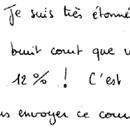 Je suis très étonné
bruit court que v
12 % ! C'est
us envoyer ce cour